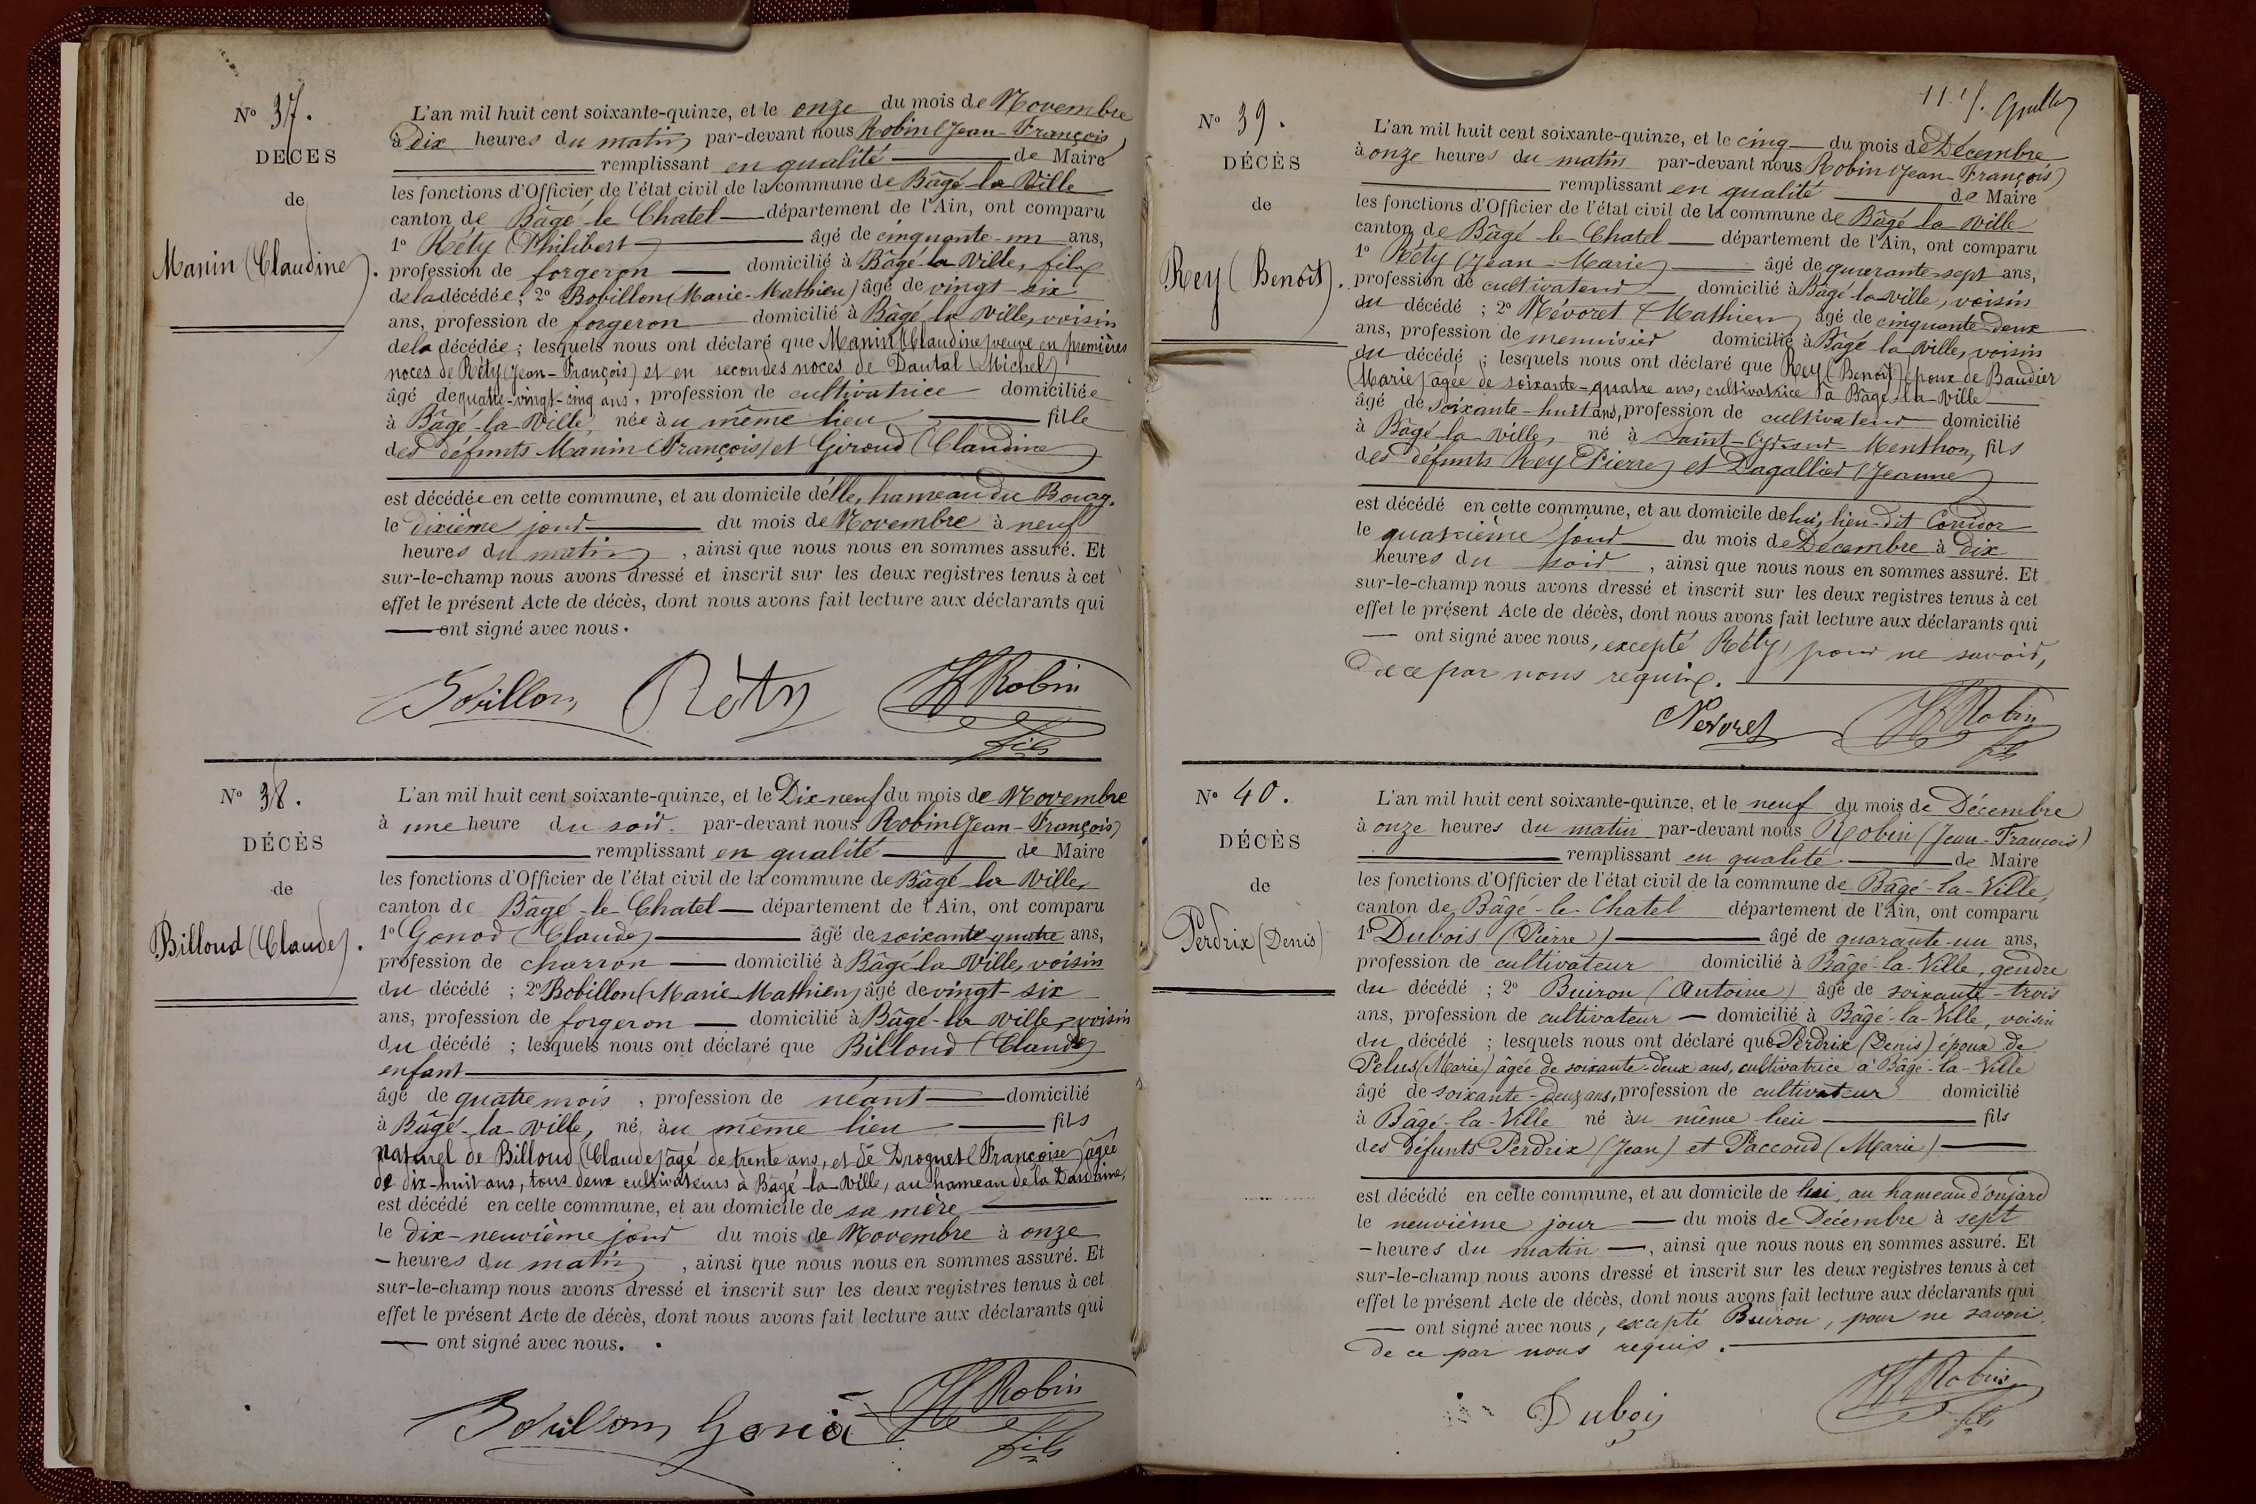 N° 37.
DÉCÈS
de
Manin (Claudine).
L'an mil huit cent soixante-quinze, et le onze du mois de Novembre
à dix heures du matin par-devant nous Robin (Jean-François)
remplissant en qualité de Maire
les fonctions d'Officier de l'état civil de la commune de Bâgé-la-Ville
canton de Bâgé-le-Chatel département de l'Ain, ont comparu
1° Réty (Philibert) âgé de cinquante-un ans,
profession de forgeron domicilié à Bâgé-la-Ville, fils
de la décédée; 2° Bobillon (Marie-Mathieu) âgé de vingt-six
ans, profession de forgeron domicilié à Bâgé-la-Ville, voisin
de la décédée; lesquels nous ont déclaré que Manin (Claudine) veuve en premières
noces de Réty (Jean-François) et en secondes noces de Dautal (Michel)
âgé de quatre-vingt-cinq ans, profession de cultivatrice domiciliée
à Bâgé-la-Ville, née au même lieu fille
des défunts Manin (François) et Giroud (Claudine)
est décédée en cette commune, et au domicile d'elle, hameau du Bourg.
le dixième jour du mois de Novembre à neuf
heures du matin, ainsi que nous nous en sommes assuré. Et
sur-le-champ nous avons dressé et inscrit sur les deux registres tenus à cet
effet le présent Acte de décès, dont nous avons fait lecture aux déclarants qui
ont signé avec nous.
Bobillon Réty Robin
fils
N° 38.
DÉCÈS
de
Billoud (Claude).
L'an mil huit cent soixante-quinze, et le Dix-neuf du mois de Novembre
à une heure du soir. par-devant nous Robin (Jean-François)
remplissant en qualité de Maire
les fonctions d'Officier de l'état civil de la commune de Bâgé-la-Ville,
canton de Bâgé-le-Chatel département de l'Ain, ont comparu
1° Gonod (Claude) âgé de soixante-quatre ans,
profession de charron domicilié à Bâgé-la-Ville, voisin
du décédé; 2° Bobillon (Marie-Mathieu) âgé de vingt-six
ans, profession de forgeron domicilié à Bâgé-la-Ville, voisin
du décédé; lesquels nous ont déclaré que Billoud (Claude)
enfant
âgé de quatre mois, profession de néant domicilié
à Bâgé-la-Ville, né au même lieu fils
naturel de Billoud (Claude) âgé de trente ans, et de Droguet (Françoise) âgée
de dix-huit ans, tous deux cultivateurs à Bâgé-la-Ville, au hameau de la
est décédé en cette commune, et au domicile de sa mère
le dix-neuvième jour du mois de Novembre à onze
heures du matin, ainsi que nous nous en sommes assuré. Et
sur-le-champ nous avons dressé et inscrit sur les deux registres tenus à cet
effet le présent Acte de décès, dont nous avons fait lecture aux déclarants qui
ont signé avec nous.
Bobillon Gonod Robin
fils
N° 39.
DÉCÈS
de
Rey (Benoît).
L'an mil huit cent soixante-quinze, et le cinq du mois de Décembre
à onze heures du matin par-devant nous Robin (Jean-François)
remplissant en qualité de Maire
les fonctions d'Officier de l'état civil de la commune de Bâgé-la-Ville
canton de Bâgé-le-Chatel département de l'Ain, ont comparu
1° Réty (Jean-Marie) âgé de quarante-sept ans,
profession de cultivateur domicilié à Bâgé-la-Ville, voisin
du décédé; 2° Névoret (Mathieu) âgé de cinquante-deux
ans, profession de menuisier domicilié à Bâgé-la-Ville, voisin
du décédé; lesquels nous ont déclaré que Rey (Benoît) époux de Baudier
(Marie) âgée de soixante-quatre ans, cultivatrice à Bâgé-la-Ville
âgé de soixante-huit ans, profession de cultivateur domicilié
à Bâgé-la-Ville, né à Saint-Cyr-sur-Menthon, fils
des défunts Rey (Pierre) et Dagallier (Jeanne)
est décédé en cette commune, et au domicile de lui, lieu-dit Corridor
le quatrième jour du mois de Décembre à dix
heures du soir, ainsi que nous nous en sommes assuré. Et
sur-le-champ nous avons dressé et inscrit sur les deux registres tenus à cet
effet le présent Acte de décès, dont nous avons fait lecture aux déclarants qui
ont signé avec nous, excepté Réty, pour ne savoir,
de ce par nous requis.
Nevoret Robin
fils
N° 40.
DÉCÈS
de
Perdrix (Denis)
L'an mil huit cent soixante-quinze, et le neuf du mois de Décembre
à onze heures du matin par-devant nous Robin (Jean-François)
remplissant en qualité de Maire
les fonctions d'Officier de l'état civil de la commune de Bâgé-la-Ville,
canton de Bâgé-le-Chatel département de l'Ain, ont comparu
1° Dubois (Pierre) âgé de quarante-un ans,
profession de cultivateur domicilié à Bâgé-la-Ville, gendre
du décédé; 2° Buiron (Antoine) âgé de soixante-trois
ans, profession de cultivateur domicilié à Bâgé-la-Ville, voisin
du décédé; lesquels nous ont déclaré que Perdrix (Denis) époux de
Pelus (Marie) âgée de soixante-deux ans, cultivatrice à Bâgé-la-Ville
âgé de soixante-deux ans, profession de cultivateur domicilié
à Bâgé-la-Ville né au même lieu fils
des défunts Perdrix (Jean) et Paccoud (Marie)
est décédé en cette commune, et au domicile de lui, au hameau d'onjard
le neuvième jour du mois de Décembre à sept
heures du matin, ainsi que nous nous en sommes assuré. Et
sur-le-champ nous avons dressé et inscrit sur les deux registres tenus à cet
effet le présent Acte de décès, dont nous avons fait lecture aux déclarants qui
ont signé avec nous, excepté Buiron, pour ne savoir
de ce par nous requis.
Dubois Robin
fils